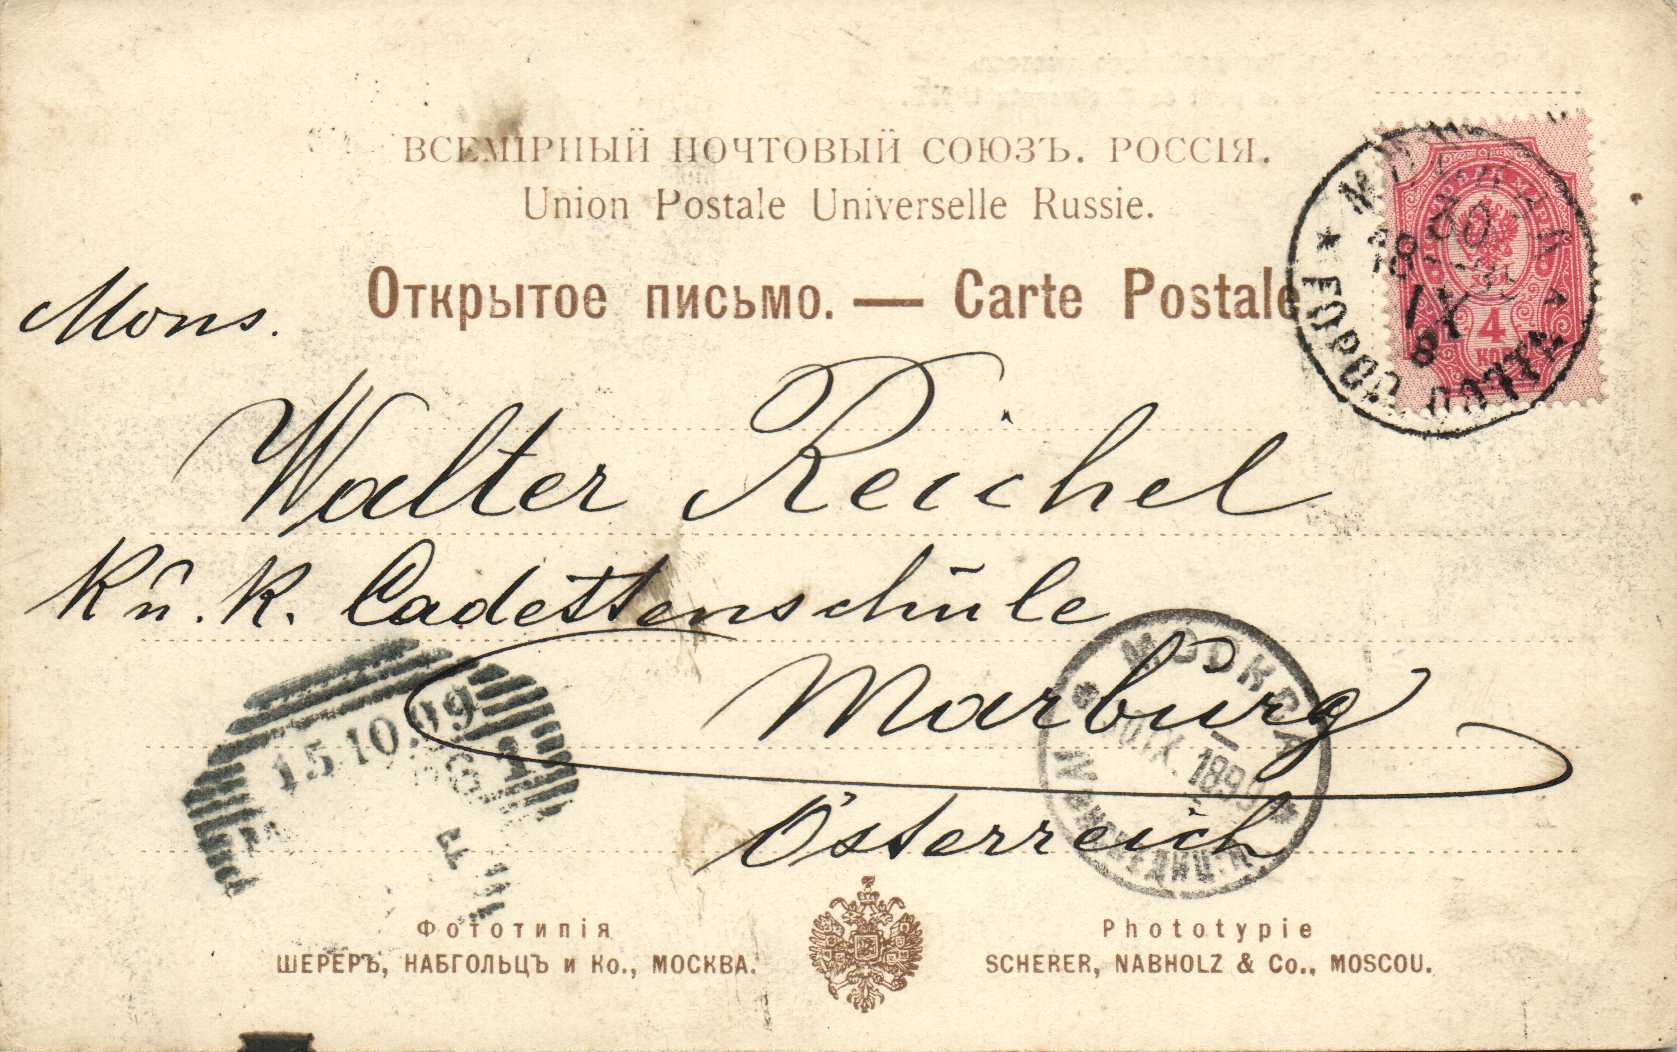 ВСЕМІРНЫЙ ПОЧТОВЫЙ СОЮЗЪ. РОССІЯ.
Union Postale Universelle Russie.
Открытое письмо. — Carte Postale
4
КОП
Mons.
Walter Reichel
K ū. K. Cadettenschūle
Marbūrg
Österreich
МОСКВА
1899
15.10.99
Фототипія
ШЕРЕРЪ, НАБГОЛЬЦЪ и Ко., МОСКВА.
Phototypie
SCHERER, NABHOLZ & Co., MOSCOU.